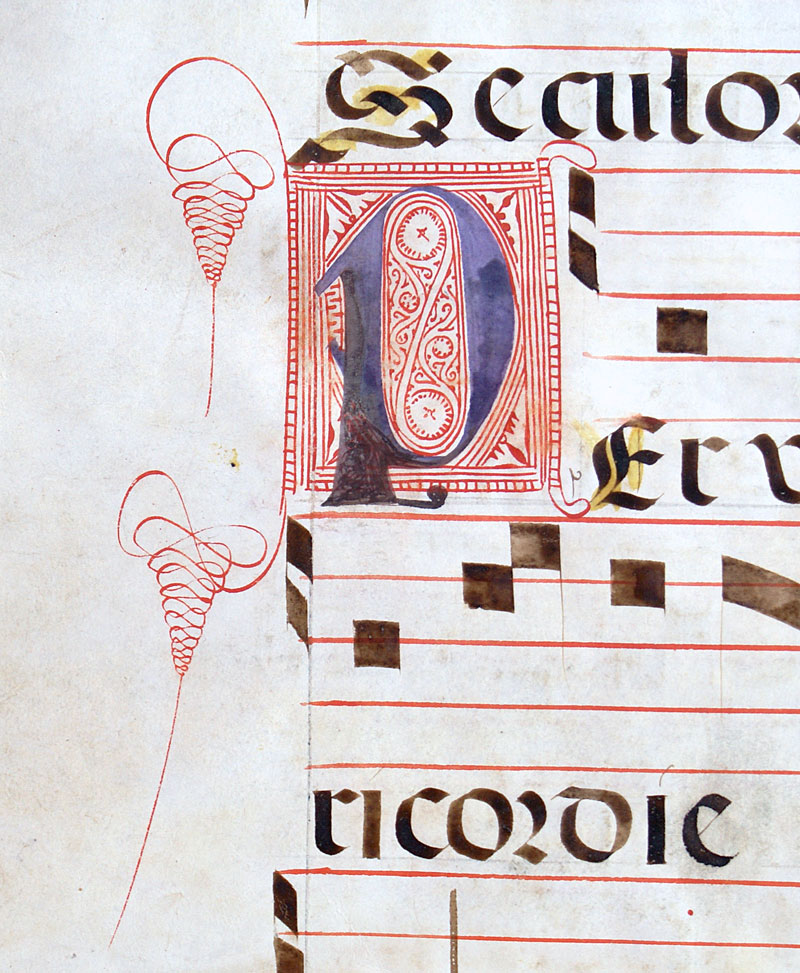 Seculor
PEr v
ricordie